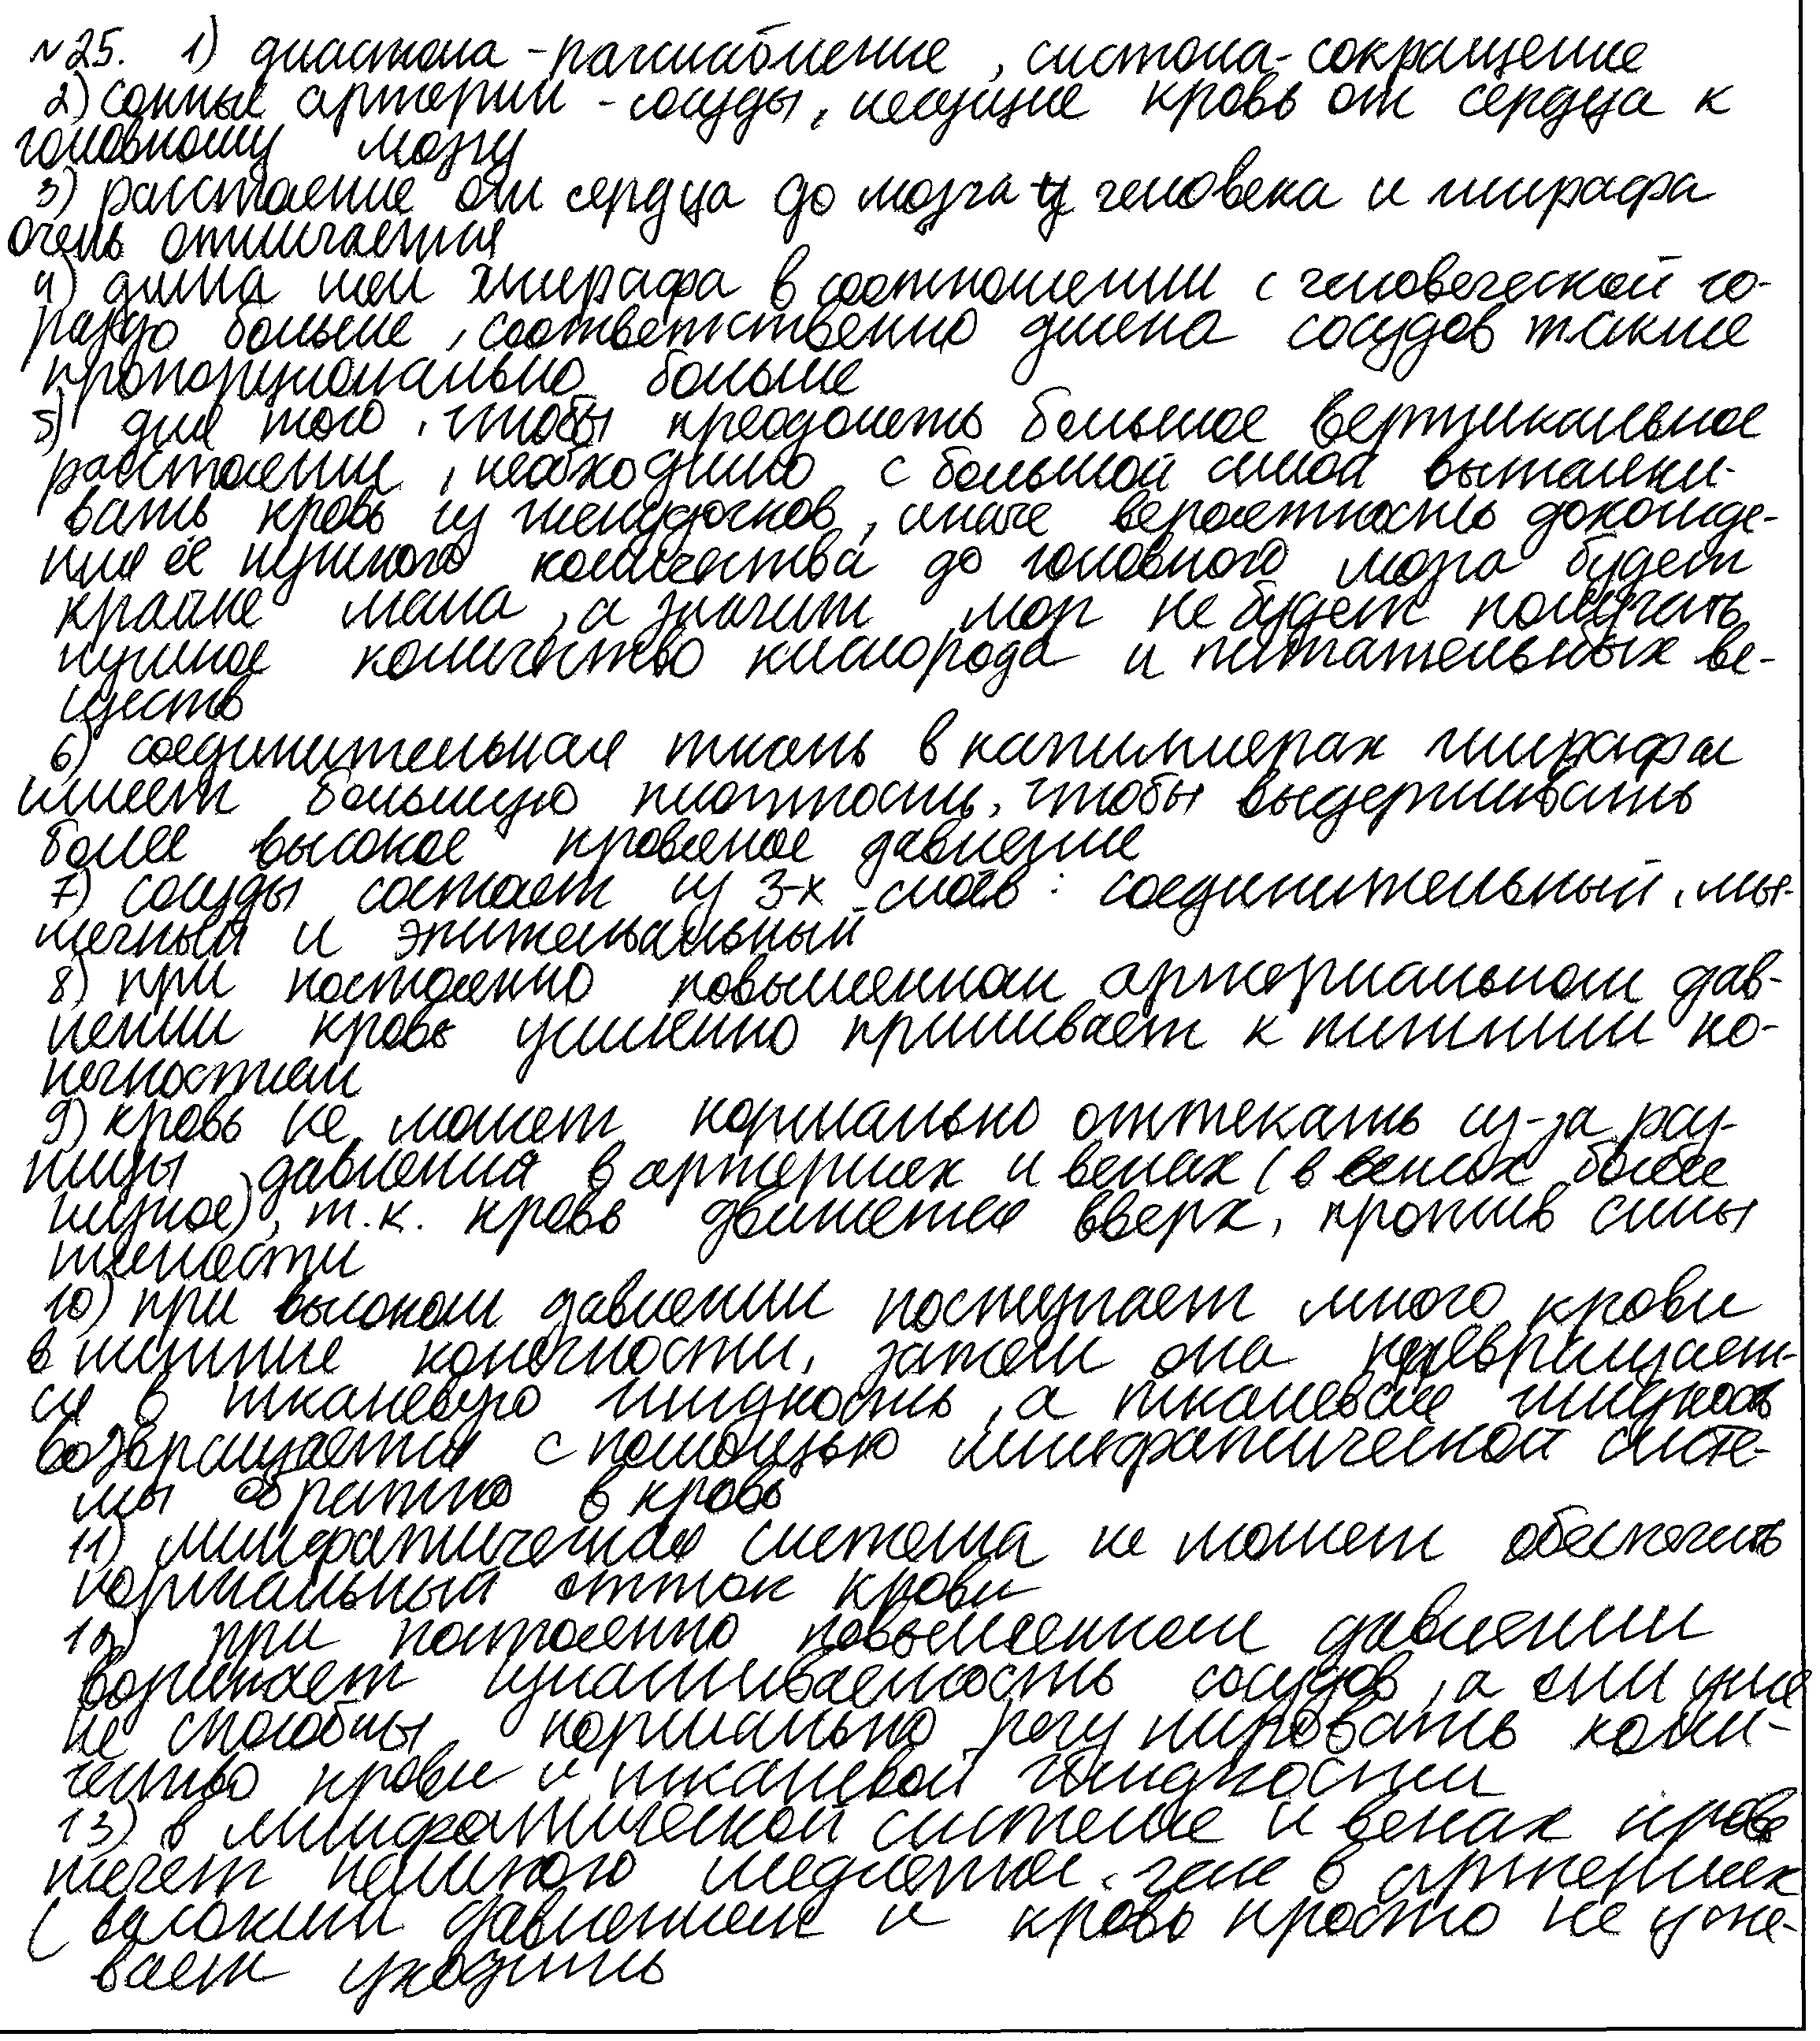 №25. 1) диастола - расслабление, систола - сокращение
2) сонные артерии - сосуды, несущие кровь от сердца к
головному мозгу
3) расстояние от сердца до мозга у человека и жирафа
очень отличается
4) длина шеи жирафа в соотношении с человеческой го-
раздо больше, соответственно длина сосудов также
пропорционально больше
5) для того, чтобы преодолеть большое вертикальное
расстояние, необходимо с большой силой выталки-
вать кровь из желудочков, иначе вероятность дохожде-
ния её нужного количества до головного мозга будет
крайне мала, а значит мозг не будет получать
нужное количество кислорода и питательных ве-
ществ
6) соединительная ткань в капиллярах жирафа
имеет большую плотность, чтобы выдерживать
более высокое кровяное давление
7) сосуды состоят из 3-х слоёв: соединительный, мы-
шечный и эпителиальный
8) при постоянно повышенном артериальном дав-
лении кровь усиленно приливает к нижним ко-
нечностям
9) кровь не может нормально оттекать из-за раз-
ницы давления в артериях и венах (в венах более
низкое), т.к. кровь движется вверх, против силы
тяжести
10) при высоком давлении поступает много крови
в нижние конечности, затем она превращает-
ся в тканевую жидкость, а тканевая жидкость
возвращается с помощью лимфатической систе-
мы обратно в кровь
11) лимфатическая система не может обеспечить
нормальный отток крови
12) при постоянно повышенном давлении
возникает изнашиваемость сосудов, а они уже
не способны нормально регулировать коли-
чество крови и тканевой жидкости
13) в лимфатической системе и венах кровь
течет намного медленнее, чем в артериях
(высоким давлением и кровь просто не успе-
вает уходить